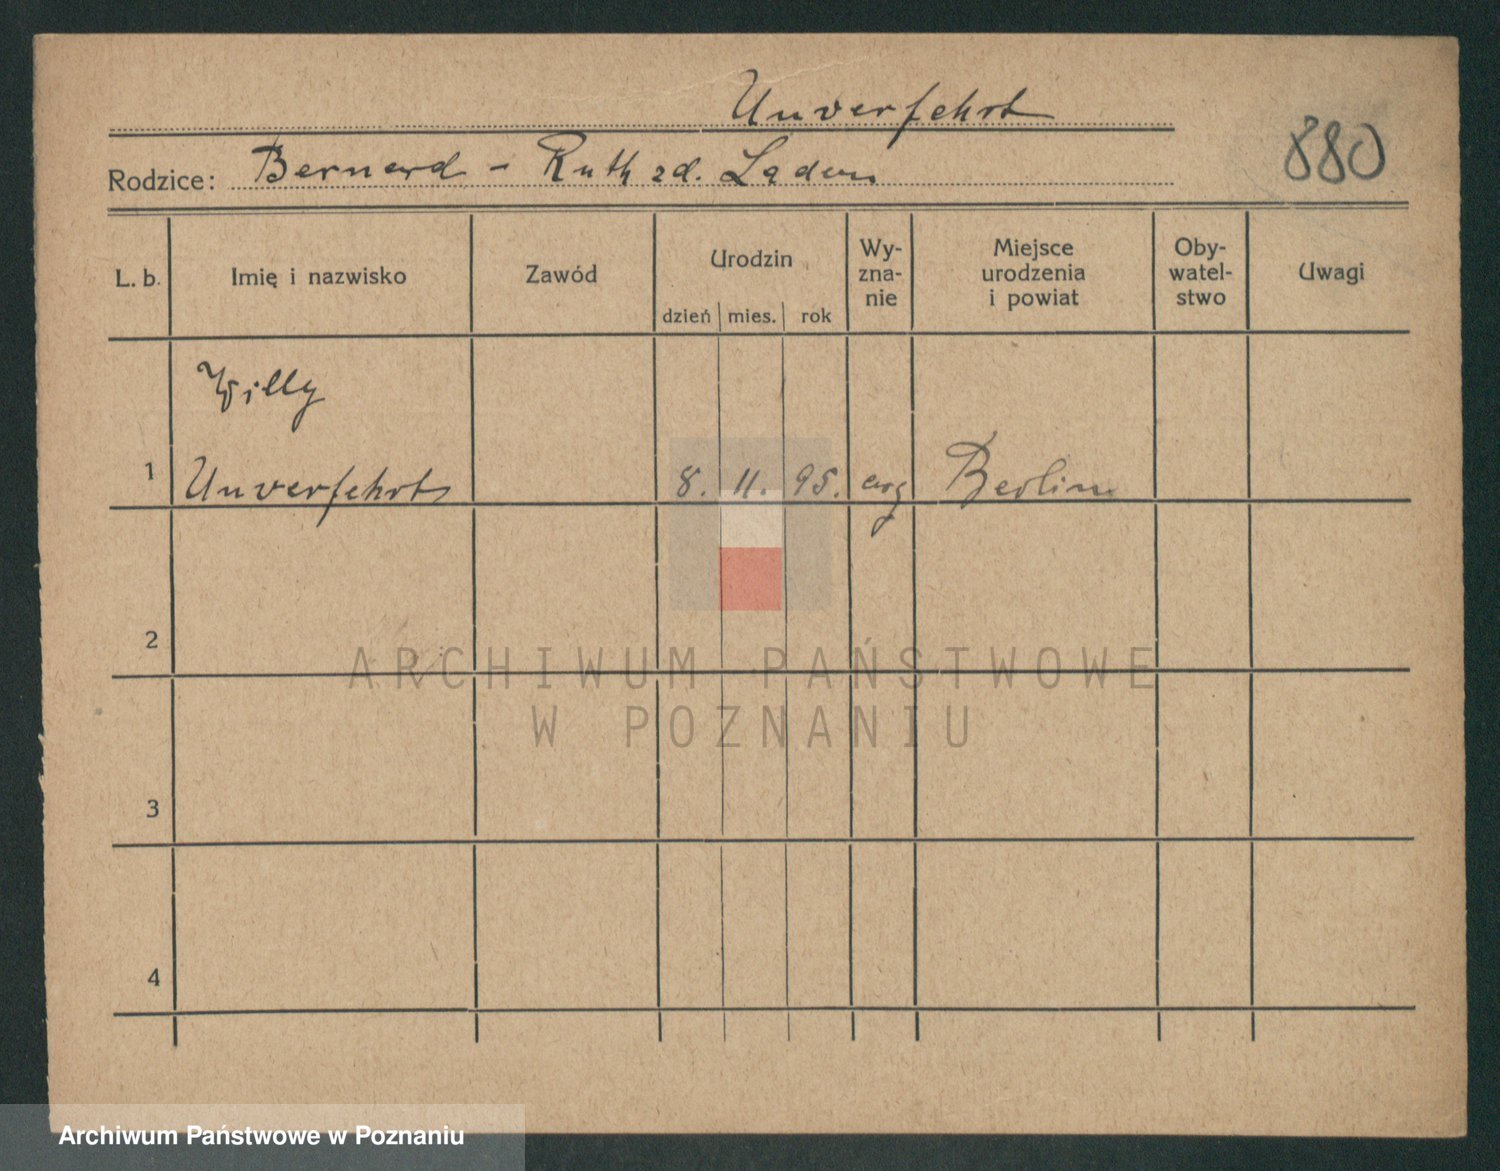 Unverfehrt
880
Rodzice: Bernard - Ruth zd.
L. b. Imię i nazwisko Zawód Urodzin dzień mies. rok Wy-zna-nie Miejsce urodzenia i powiat Oby-watel-stwo Uwagi
Willy
1 Unverfehrt 8. 11. 95. Berlin
2
ARCHIWUM PAŃSTWOWE
W POZNANIU
3
4
Archiwum Państwowe w Poznaniu